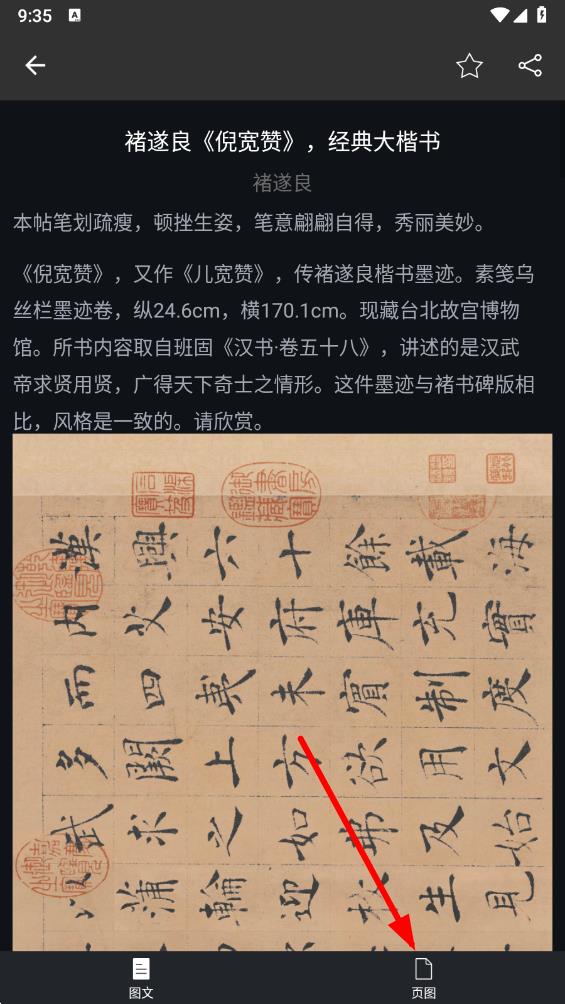 9:35
A
褚遂良《倪宽赞》，经典大楷书
褚遂良
本帖笔划疏瘦，顿挫生姿，笔意翩翩自得，秀丽美妙。
《倪宽赞》，又作《儿宽赞》，传褚遂良楷书墨迹。素笺乌
丝栏墨迹卷，纵24.6cm，横170.1cm。现藏台北故宫博物
馆。所书内容取自班固《汉书·卷五十八》，讲述的是汉武
帝求贤用贤，广得天下奇士之情形。这件墨迹与褚书碑版相
比，风格是一致的。请欣赏。
漢興六十餘載海
內艾安府庫充實
而四夷未賓制度
多闕上方欲用文
武求之如弗及始
以蒲輪迎枚生見
图文
页图